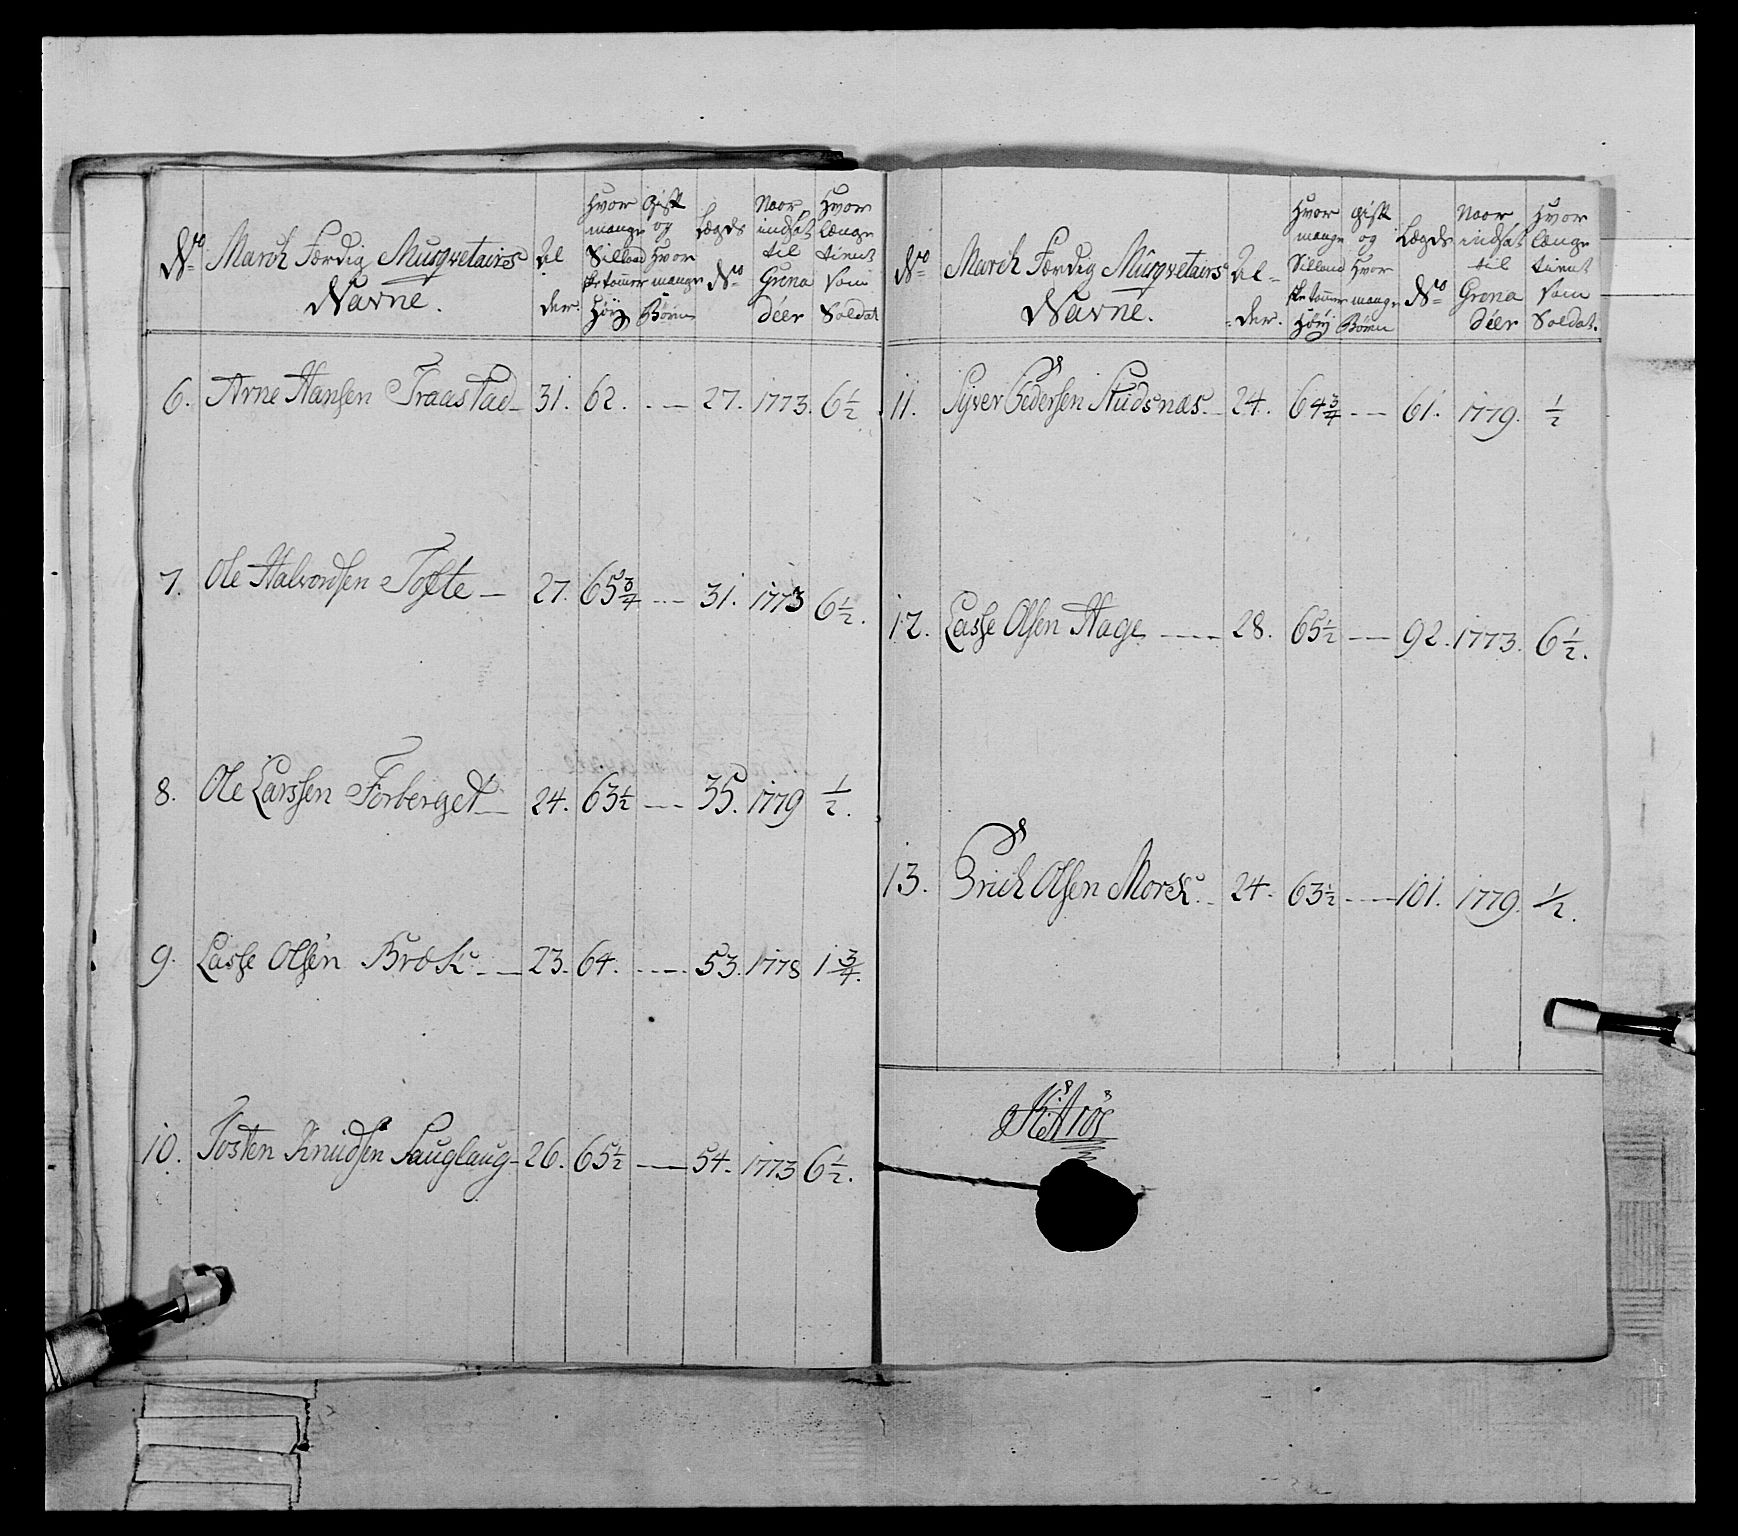 No March Færdig Musqvetaires Navne. Al der. Hvor mange Sillandske tommer Høÿ Gift og Hvor mange Børn Lægds No Naar indsat til Grenadeer Hvor længe tient som Soldat
6. Arne Hansen Traastad 31. 62. - - 27. 1773. 6 1/2
7. Ole Halvordsen Tofte - 27. 65 3/4 - - 31. 1773 6 1/2.
8. Ole Larssen Forberget - 24. 63 1/2 - - 35. 1779 1/2.
9. Lasse Olsen Bræk. - - 23. 64. - - 53. 1778 1 3/4.
10. Tosten Knudsen Sauglaug - 26. 65 1/2 - - 54. 1773 6 1/2.
No March Færdig Musqvetairs Navne. Al- der. Hvor mange Sillandske tommer Høÿ gift og Hvor mange Børn Lægds No Naar indsat til Grenadeer Hvor længe tient som Soldat.
11. Syver Pedersen Studsnæs. 24. 64 3/4 - - 61. 1779. 1/2
12. Lasse Olsen Hage - - 28. 65 1/2 - - 92. 1773. 6 1/2.
13. Erich Olsen Morck. - 24. 63 1/2 - - 101. 1779. 1/2.